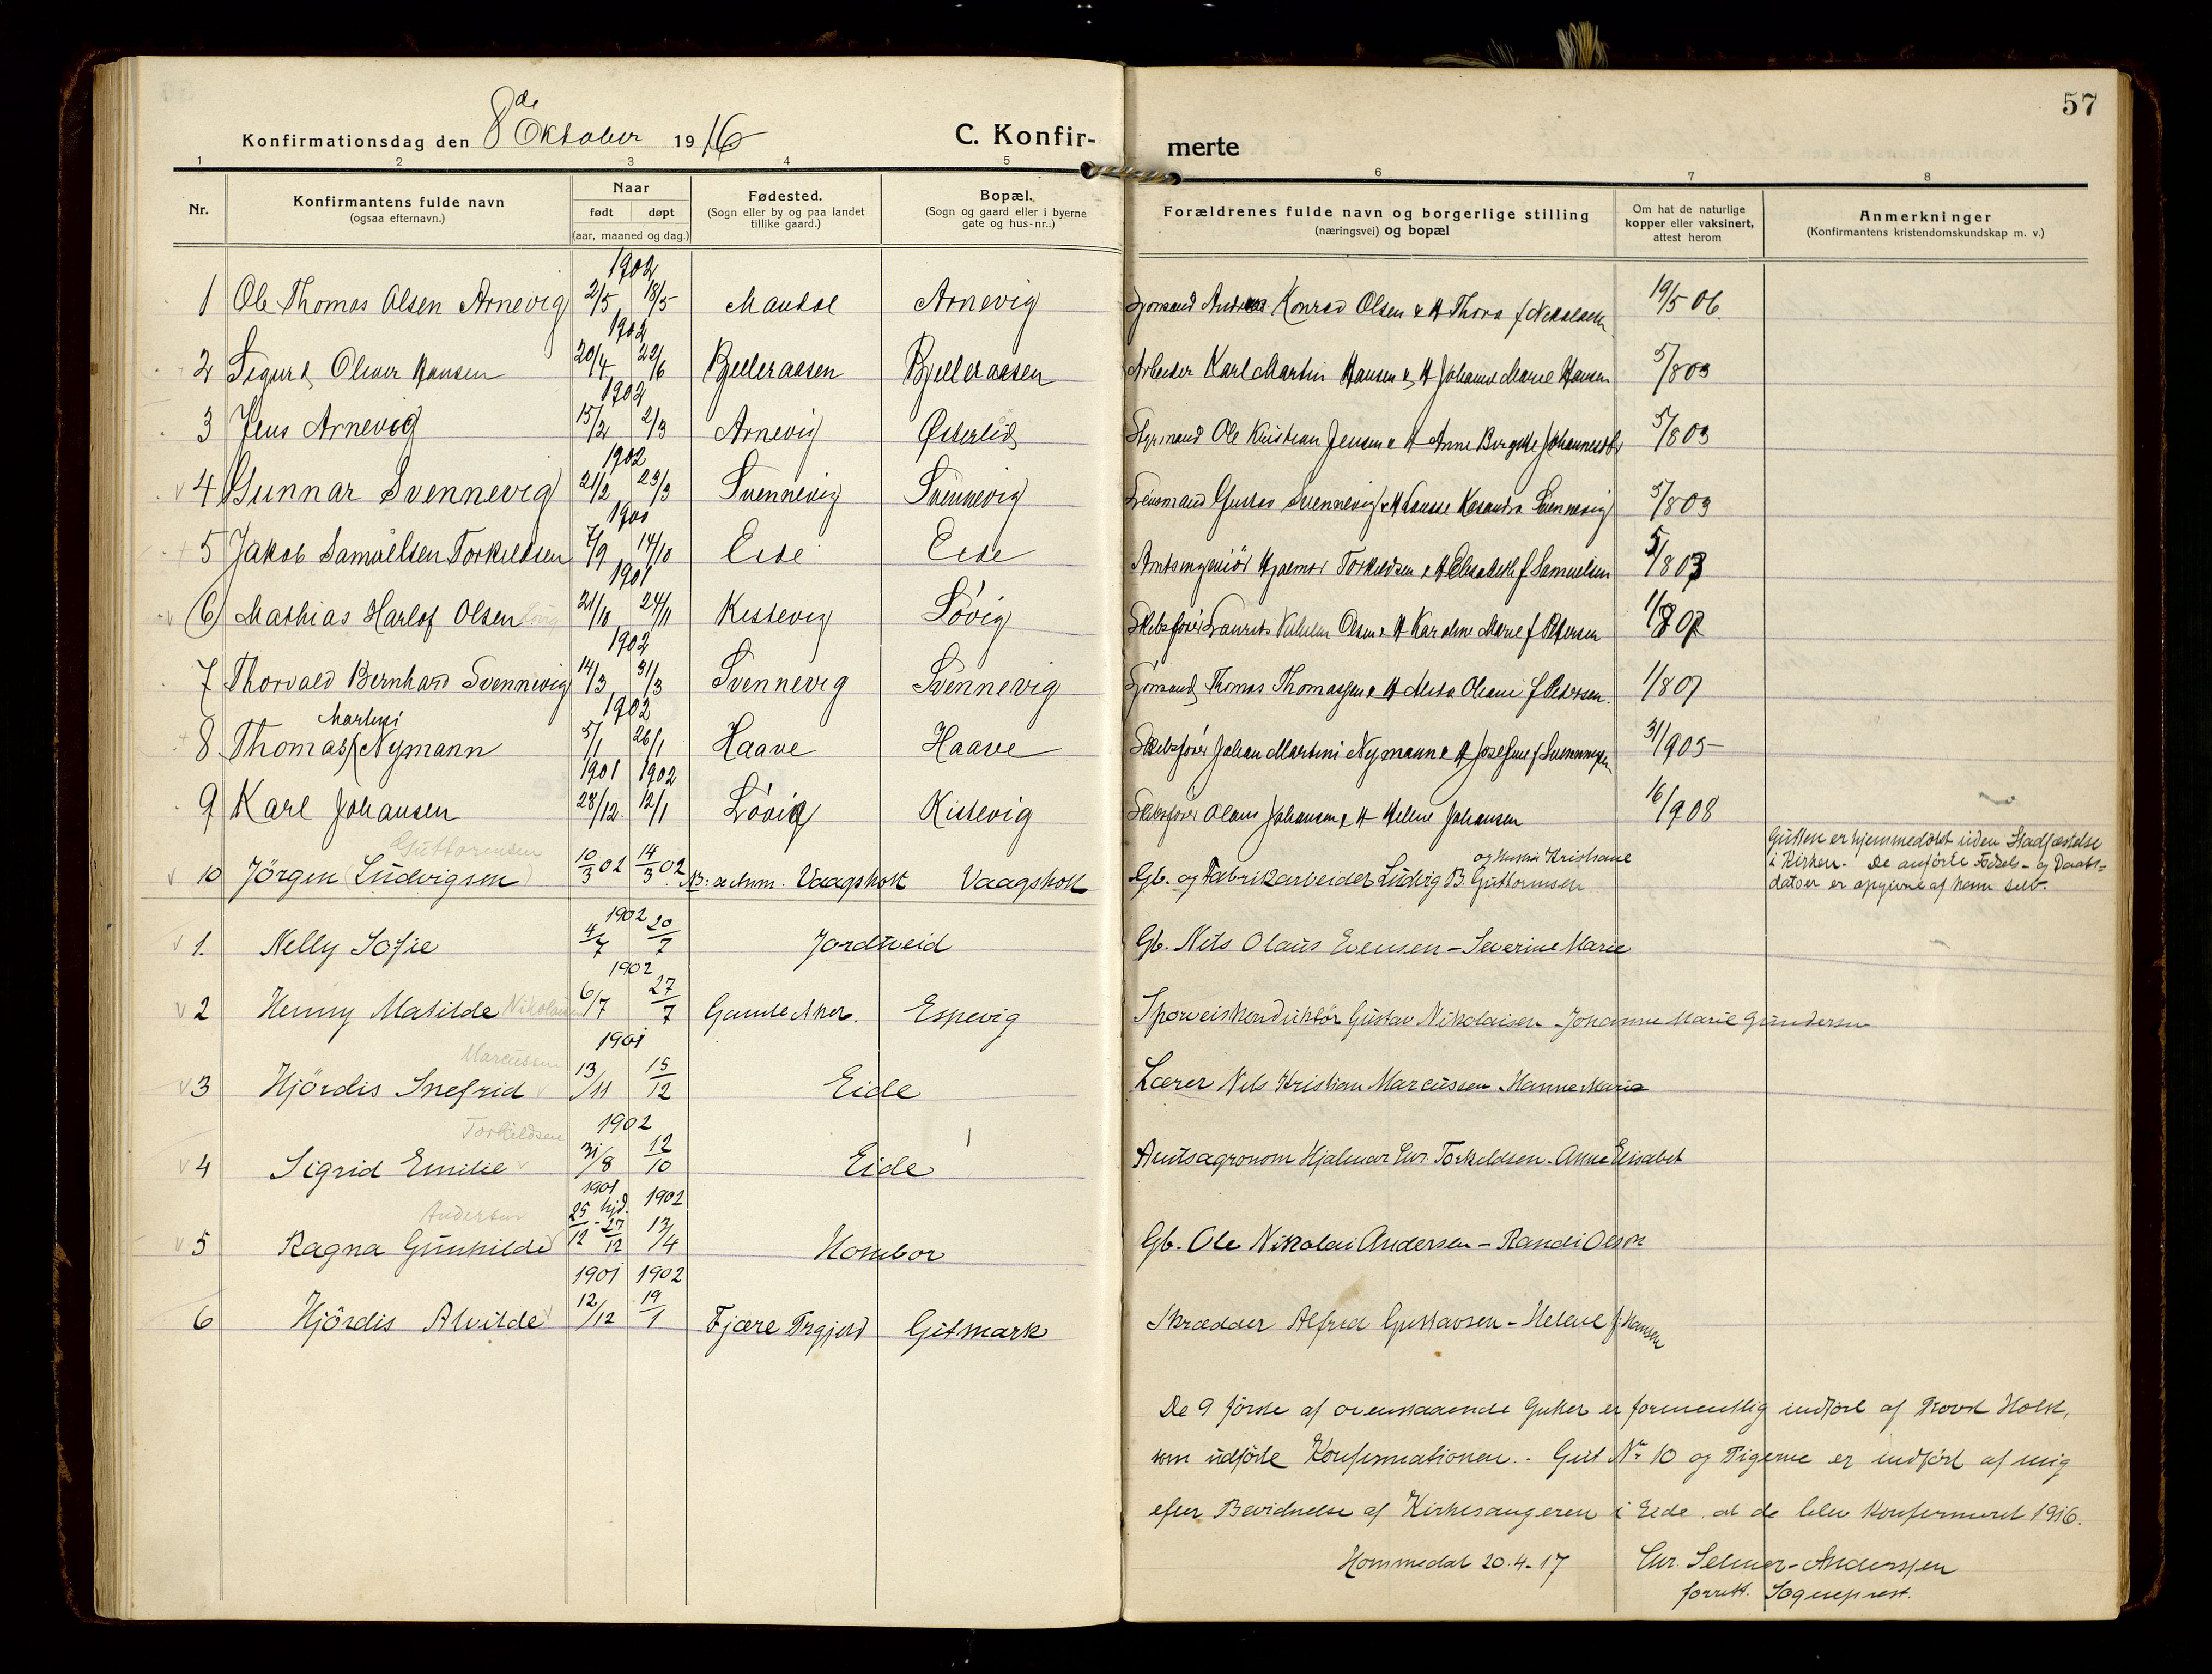 57
Konfirmationsdag den 8de Oktober 1916
C. Konfir-
merte
1 2 3 4 5 6 7 8
Nr.
Konfirmantens fulde navn
(ogsaa efternavn.)
Naar
født døpt
(aar, maaned og dag.)
Fødested.
(Sogn eller by og paa landet
tillike gaard.)
Bopæl.
(Sogn og gaard eller i byerne
gate og hus-nr..)
Forældrenes fulde navn og borgerlige stilling
(næringsvei) og bopæl
Om hat de naturlige
kopper eller vaksinert,
attest herom
Anmerkninger
(Konfirmantens kristendomskundskap m. v.)
1902
1 Ole Thomas Olsen Arnevig 2/5 18/5 Mandal Arnevig Sjømand Andreas Konrad Olsen & H Thora f Nikolaisen 19/5 06.
1902
2 Sigurd Oliver Hansen 20/4 22/6 Bjelleraasen Bjelleraasen Arbeider Karl Martin Hansen & H Johanne Marie Hansen 5/8 03
1902
3 Jens Arnevig 15/2 2/3 Arnevig Østerlid Styrmand Ole Kristian Jensen & H Anne Birgitte Johannesdtr 5/8 03
1902
4 Gunnar Svennevig 21/2 23/3 Svennevig Svennevig Gustav Svennevig & H Kasandra Svennevig 5/8 03
1901
5 Jakob Samuelsen Torkildsen 7/9 14/10 Eide Eide Amtsingeniör Hjalmar Torkildsen & H Elisabeth f Samuelsen 5/8 03
1901
6 Mathias Harlof Olsen Løvig 21/10 24/11 Kistevig Løvig Skibsfører Laurits Vilhelm Olsen & H Karoline Marie f Petersen 1/8 07
1902
7 Thorvald Bernhard Svennevig 14/3 31/3 Svennevig Svennevig Sjömand Thomas Thomassen & H Oleane f Pedersen. 1/8 07
1902
Martini
8 Thomas Nymann 5/1 26/1 Haave Haave Skibsfører Johan Martini Nymann & H Josefine f 31/9 05
1901 1902
9 Karl Johansen 28/12. 12/1 Løvig Kistevig Skibsfører Olaus Johansen & H Helene Johansen 16/9 08
Guttormsen
og Hustru Kristiane
10 Jörgen (Ludvigsen) 10/3 02 14/3 02. NB: se Anm. Vaagsholt Vaagsholt Gb. og Fabrikarbeider Ludvig B. Guttormsen
Gutten er hjemmedöbt uden Stadfæstelse
i Kirken. De anførte Födsels- og Daabs-
datoer er opgivne af ham selv.
1902
1. Nelly Sofie 4/7 20/7 Jordtveid Gb. Nils Olaus Evensen - Severine Marie
1902
2 Henny Matilde Nikolaisen 6/7 27/7 Gamle Aker. Espevig Sporveiskonduktør Gustav Nikolaisen - Johanne Marie Gundersen
1901
Marcussen
3 Hjördis Snefrid 13/11 15/12 Eide Lærer Nils Kristian Marcussen - Hanne Marie
1902
Torkildsen
4 Sigrid Emilie 31/8 12/10 Eide Amtsagronom Hjalmar Chr. Torkeldsen - Anne Elisabet
1901 1902
Andersen
5 Ragna Gunhilde 25/12 hjd. - 27/12 13/4 Hombor Gb. Ole Nikolai Andersen - Randi Olsen
1901 1902
6 Hjördis Alvilde 12/12 19/1 Fjære Prgjeld Gitmark Skrædder Alfred Gustavsen - Helene f. Hansen
De 9 förste af ovenstaaende Gutter er formentlig indført af Provst Holst,
som udførte Konfirmationen. Gut No 10 og Pigerne er indført af mig
efter Bevidnelse af Kirkesangeren i Eide at de blev konfirmeret 1916.
Hommedal 20.4.17 Chr. Selmer-Anderssen
forrett. Sogneprest.